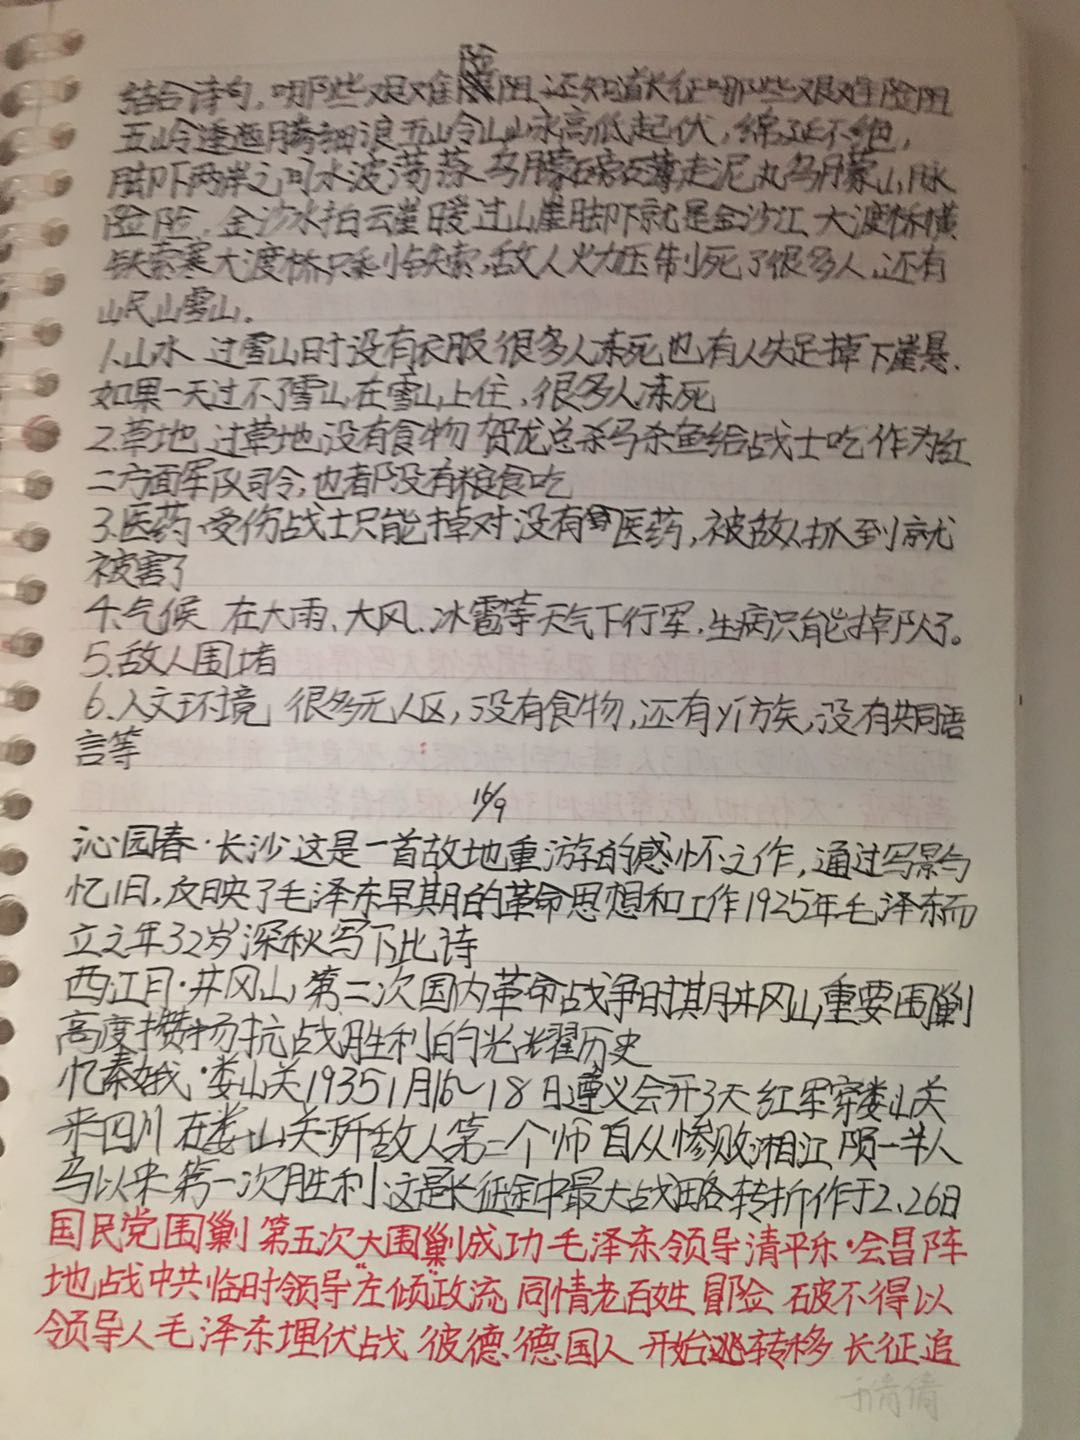 险
结合诗句,哪些艰难阻,还知道长征哪些艰难险阻
五岭逶迤腾细浪五岭山山脉高低起伏,绵延不绝,
脚下两岸之间水波荡荡乌朦磅礴走泥丸乌朦山脉
险险,金沙水拍云崖暖过山崖脚下就是金沙江大渡桥横
铁索寒大渡桥只剩铁索,敌人火力压制死了很多人,还有
山民山雪山。
1.山水 过雪山时没有衣服很多人冻死也有人失足掉下崖悬.
如果一天过不了雪山在雪山上住,很多人冻死
2.草地 过草地没有食物 贺龙总杀马杀鱼给战士吃 作为红
二方面军队司令,也都没有粮食吃
3.医药.受伤战士只能掉对没有医药,被敌人抓到就
被害了
4.气候 在大雨、大风、冰雹等天气下行军,生病只能掉队了。
5.敌人围堵
6.人文环境 很多无人区,没有食物,还有yi族,没有共同语
言等
16/9
沁园春·长沙这是一首故地重游的感怀之作,通过写景与
忆旧,反映了毛泽东早期的革命思想和工作1925年毛泽东而
立之年32岁深秋写下此诗
西江月·井冈山 第二次国内革命战争时其月井冈山重要围剿
高度攒扬抗战胜利的光耀历史
忆秦娥·娄山关1935 1月16~18日遵义会开3天红军穿娄山关
来四川 在娄山关歼敌人第一个师 自从惨败湘江陨一半人
马以来第一次胜利这是长征途中最大战略转折作于2.26日
国民党围剿 第五次大围剿成功毛泽东领导清平乐·会昌阵
地战中共临时领导"左倾"政流 同情老百姓 冒险 破不得以
领导人毛泽东埋伏战 彼德·德国人 开始逃转移 长征追
于倩倩